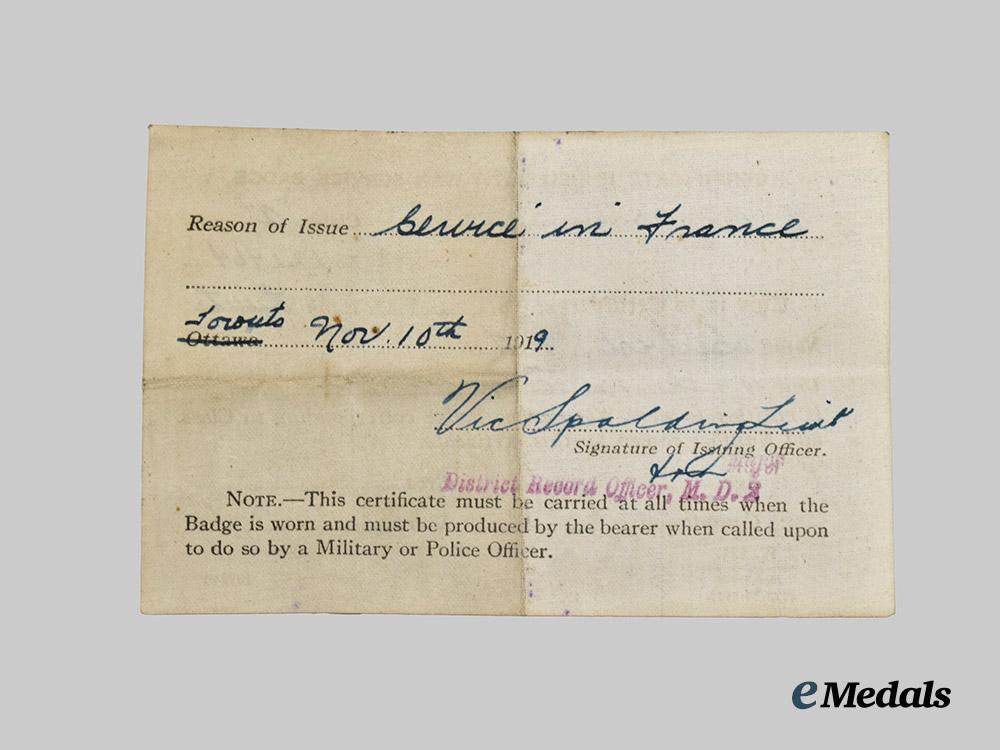 Reason of Issue Service in France
Toronto
Ottawa Nov. 10th 1919
Vic Spalding Lieut
Signature of Issuing Officer.
for Major
District Record Officer, M. D. 2
NOTE.—This certificate must be carried at all times when the
Badge is worn and must be produced by the bearer when called upon
to do so by a Military or Police Officer.
eMedals